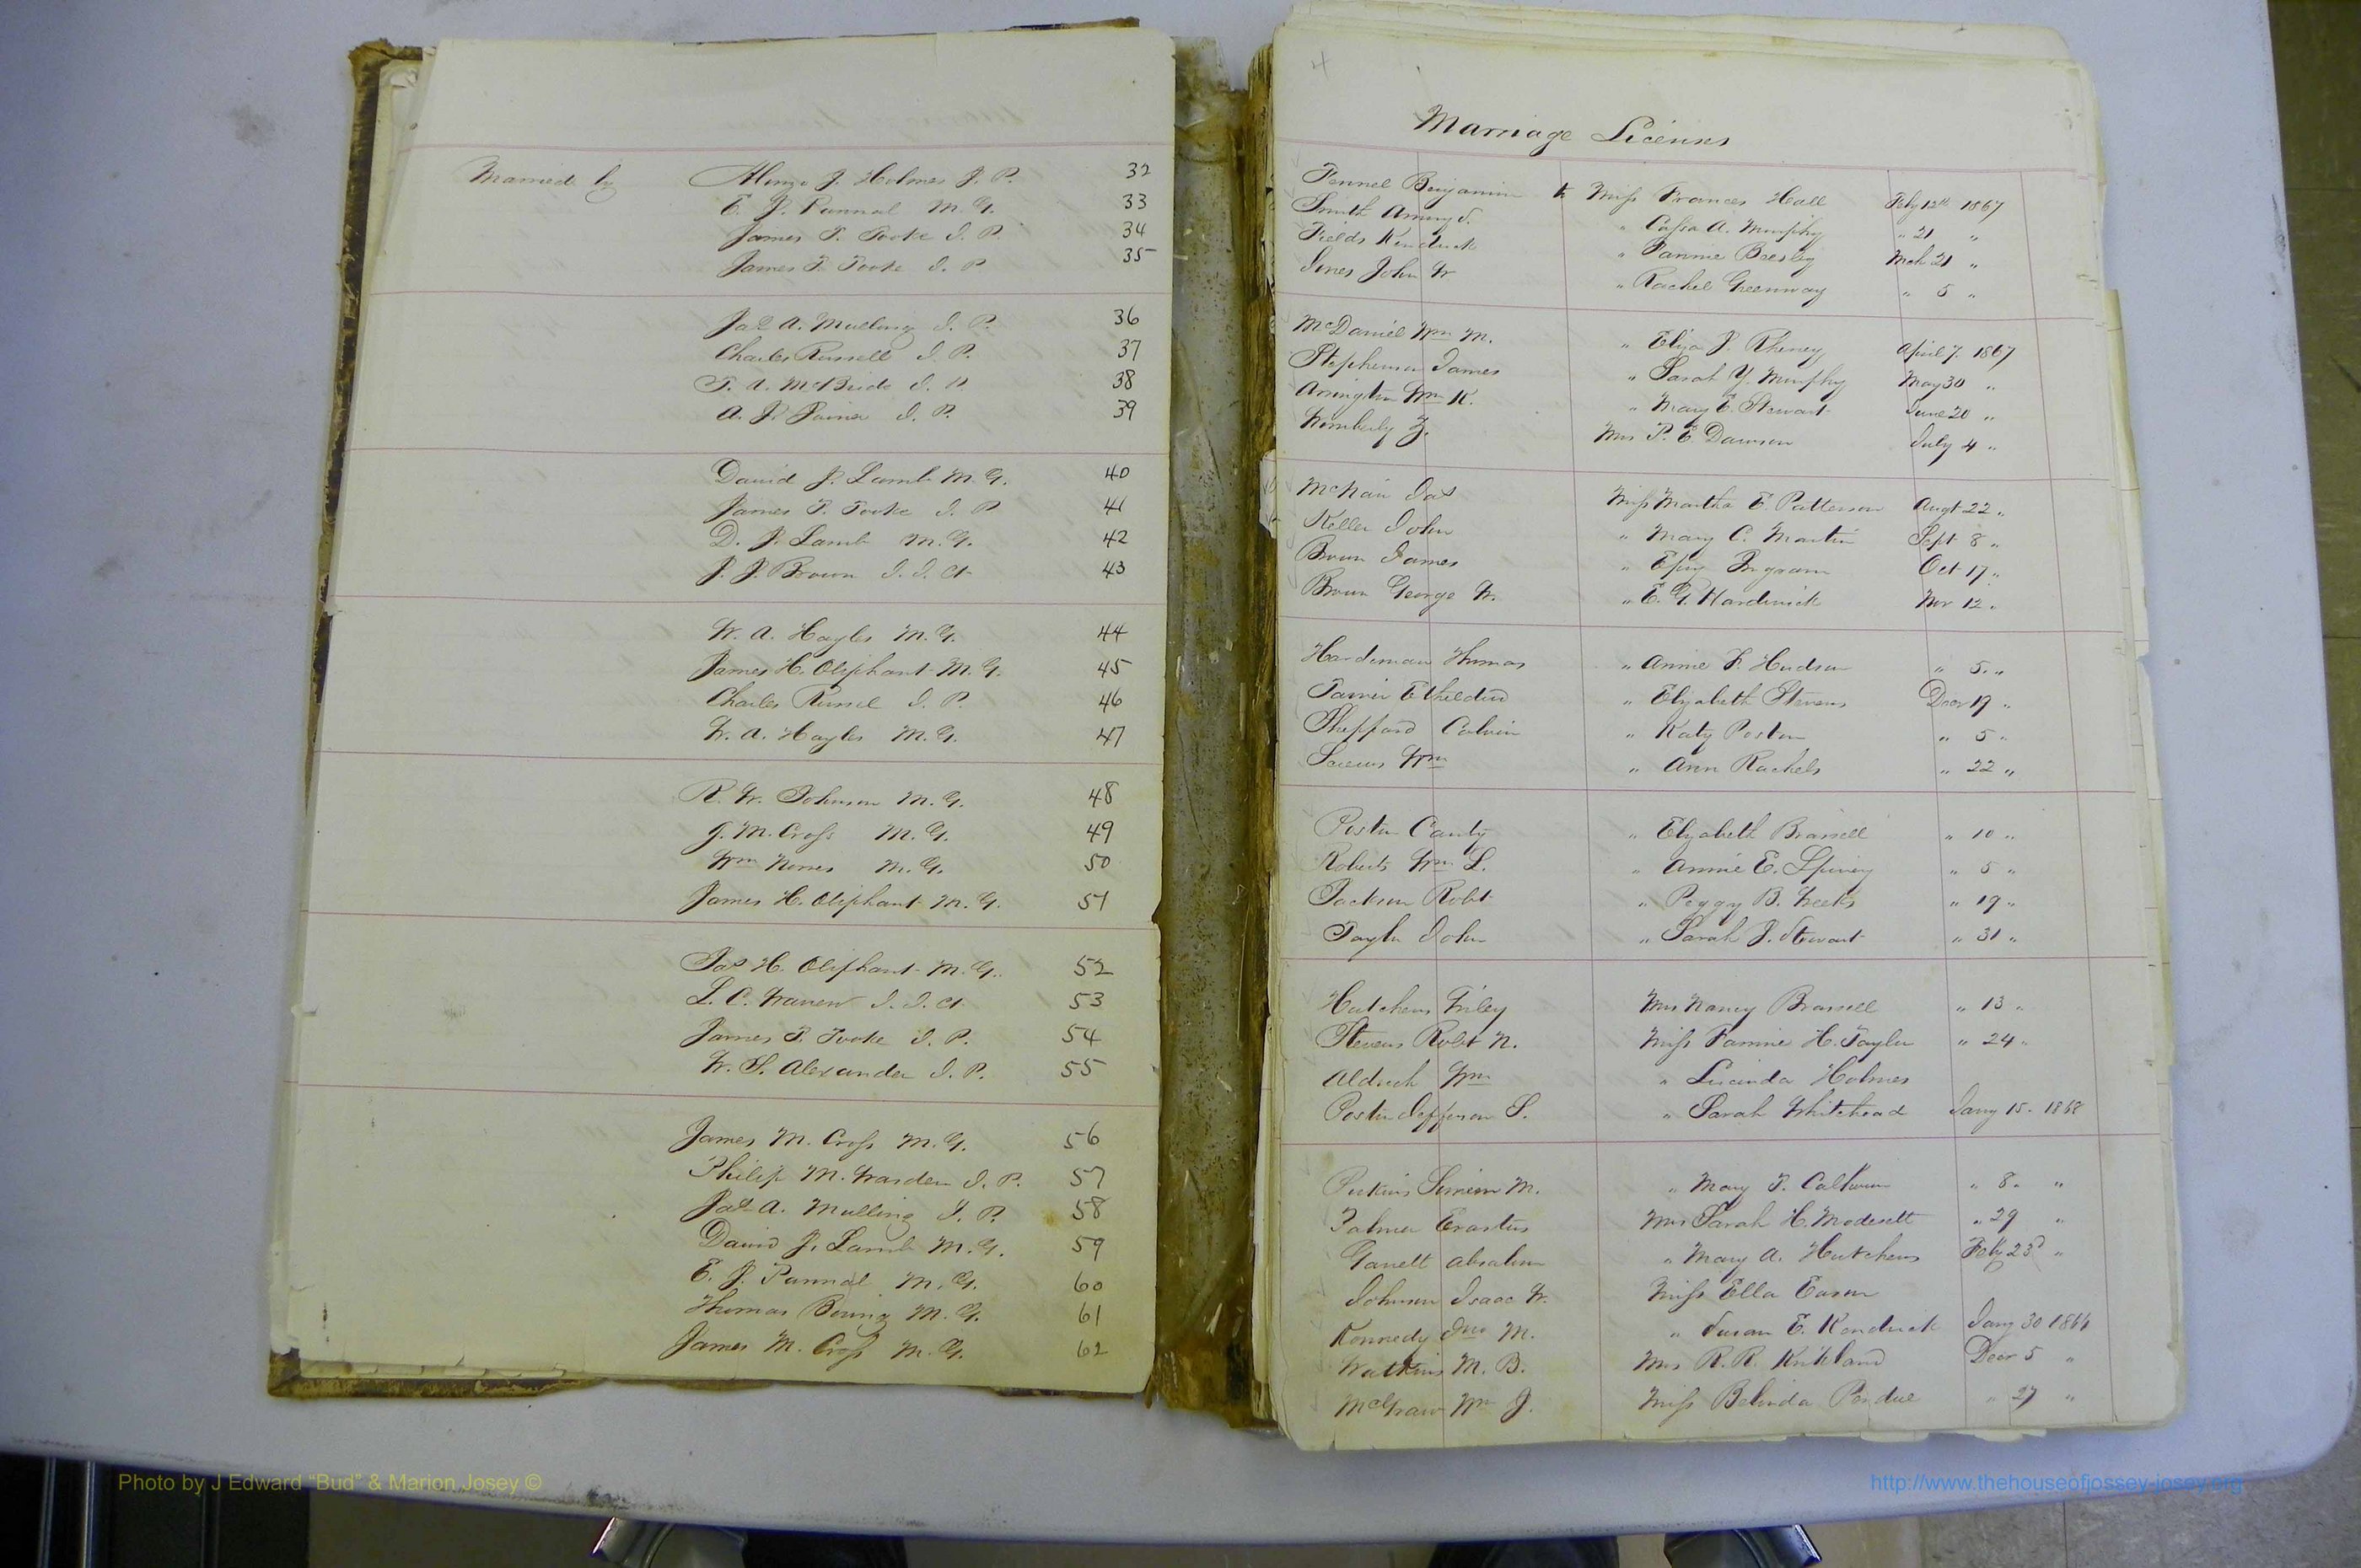 Married by Alonzo J. Holmes J. P. 32
E. J. Pannal M. G. 33
James T. Tooke J. P. 34
James T. Tooke J. P. 35
Jas A. Mulling J. P. 36
Charles Russell J. P. 37
T. A. McBride J. P. 38
A. J. J. P. 39
David J. Lamb M. G. 40
James T. Tooke J. P. 41
D. J. Lamb M. G. 42
J. J. Brown J. I. Ct. 43
W. A. Hayles M. G. 44
James H. Oliphant M. G. 45
Charles Russel J. P. 46
W. A. Hayles M. G. 47
R. W. Johnson M. G. 48
J. M. Cross M. G. 49
Wm M. G. 50
James H. Oliphant M. G. 51
Jas H. Oliphant M. G. 52
L. C. Warren J. I. Ct. 53
James T. Tooke J. P. 54
W. S. Alexander J. P. 55
James M. Cross M. G. 56
Philip M. Warden J. P. 57
Jas A. Mulling J. P. 58
David J. Lamb M. G. 59
E. J. Pannal M. G. 60
Thomas M. G. 61
James M. Cross M. G. 62
4
Marriage Licenses
Fennel Benjamin to Miss Frances Hall Feby 12th 1867
Smith " Cassa A. Murphy " 21 "
Fields Kendrick " Fannie Beesley Mch 21 "
Jones John W " Rachel Greenway " 5 "
McDaniel Wm M. " Eliza J. Rheney April 7. 1867
Stephenson James " Sarah Y. Murphy May 30 "
Arrington Wm K. " Mary E. Stewart June 20 "
Wimberly Z. Mrs P. E. Dawson July 4 "
McNair Jas Miss Martha E. Patterson Augt 22 "
Keller John " Mary C. Martin Sept 8 "
Brown James " Epsy Ingram Oct 17 "
Brown George W. " E. G. Hardwick Nov 12 "
Hardeman Thomas " Annie F. Hudson " 5. "
Etheldred " Elizabeth Stevens Decr 19 "
Sheppard Calvin " Katy Poston " 5 "
Screws Wm " Ann Rachels " 22 "
Poston Canty " Elizabeth Brassell " 10 "
Roberts Wm L. " Annie E. Spivey " 5 "
Jackson Robt " Peggy B. Weeks " 19 "
Taylor John " Sarah J. Stewart " 31 "
Hutchens Wiley Mrs Nancy Brassell " 13 "
Stevens Robt N. Miss Fannie H. Taylor " 24 "
Aldrich Wm " Lucinda Holmes
Poston Jefferson S. " Sarah Whitehead Jany 15. 1868
Perkins Simeon M. " Mary F. Calhoun " 8. "
Palmer Erastus Mrs Sarah H. Modesett " 29 "
Garrett Absalom " Mary A. Hutchens Feby 23d "
Johnson Isaac W. Miss Ella Eason
Kennedy Jno M. " Susan E. Kendrick Jany 30 1866
Watkins M. B. Mrs R. R. Kirkland Decr 5 "
McGraw Wm J. Miss Belinda Perdue " 27 "
Photo by J Edward “Bud” & Marion Josey ©
http://www.thehouseofjossey-josey.org